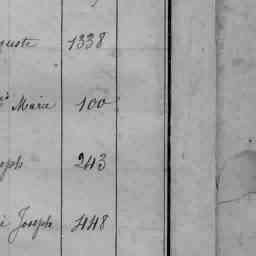 guste 1338
é Marie 100
seph 243
é Joseph 448